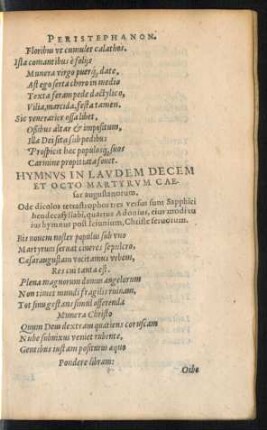 PERISTEPHANON.
Floribus ut cumulet calathos.
Ista comantibus è folijs
Munera virgo puerq́, date,
Ast ego serta choro in medio
Texta feram pede dactylico,
Vilia, marcida, festa tamen.
Sic venerarier ossa libet,
Ossibus altar & impositum,
Illa Dei sita sub pedibus
Prospicit hæc populosq́, suos
Carmine propitiata fouet.
HYMNVS IN LAVDEM DECEM
ET OCTO MARTYRVM CAE-
sar augustanorum.
Ode dicolos tetrastrophos tres versus sunt Sapphici
hendecasyllabi, quartus Adonius, eiusmodi su
ius hymnus post Ieiunium, Christe seruorum.
Bis nouem noster populus sub vno
Martyrum seruat cineres sepulcro,
Cæsaraugustam vocitamus vrbem,
Res cui tanta est.
Plena magnorum domus angelorum
Non timet mundi fragilis ruinam,
Tot sinu gestans simul offerenda
Munera Christo
Quum Deus dextram quatiens coruscam
Nube subnixus veniet rubente,
Gentibus iustam positurus æquo
Pondere libram:
Orbe